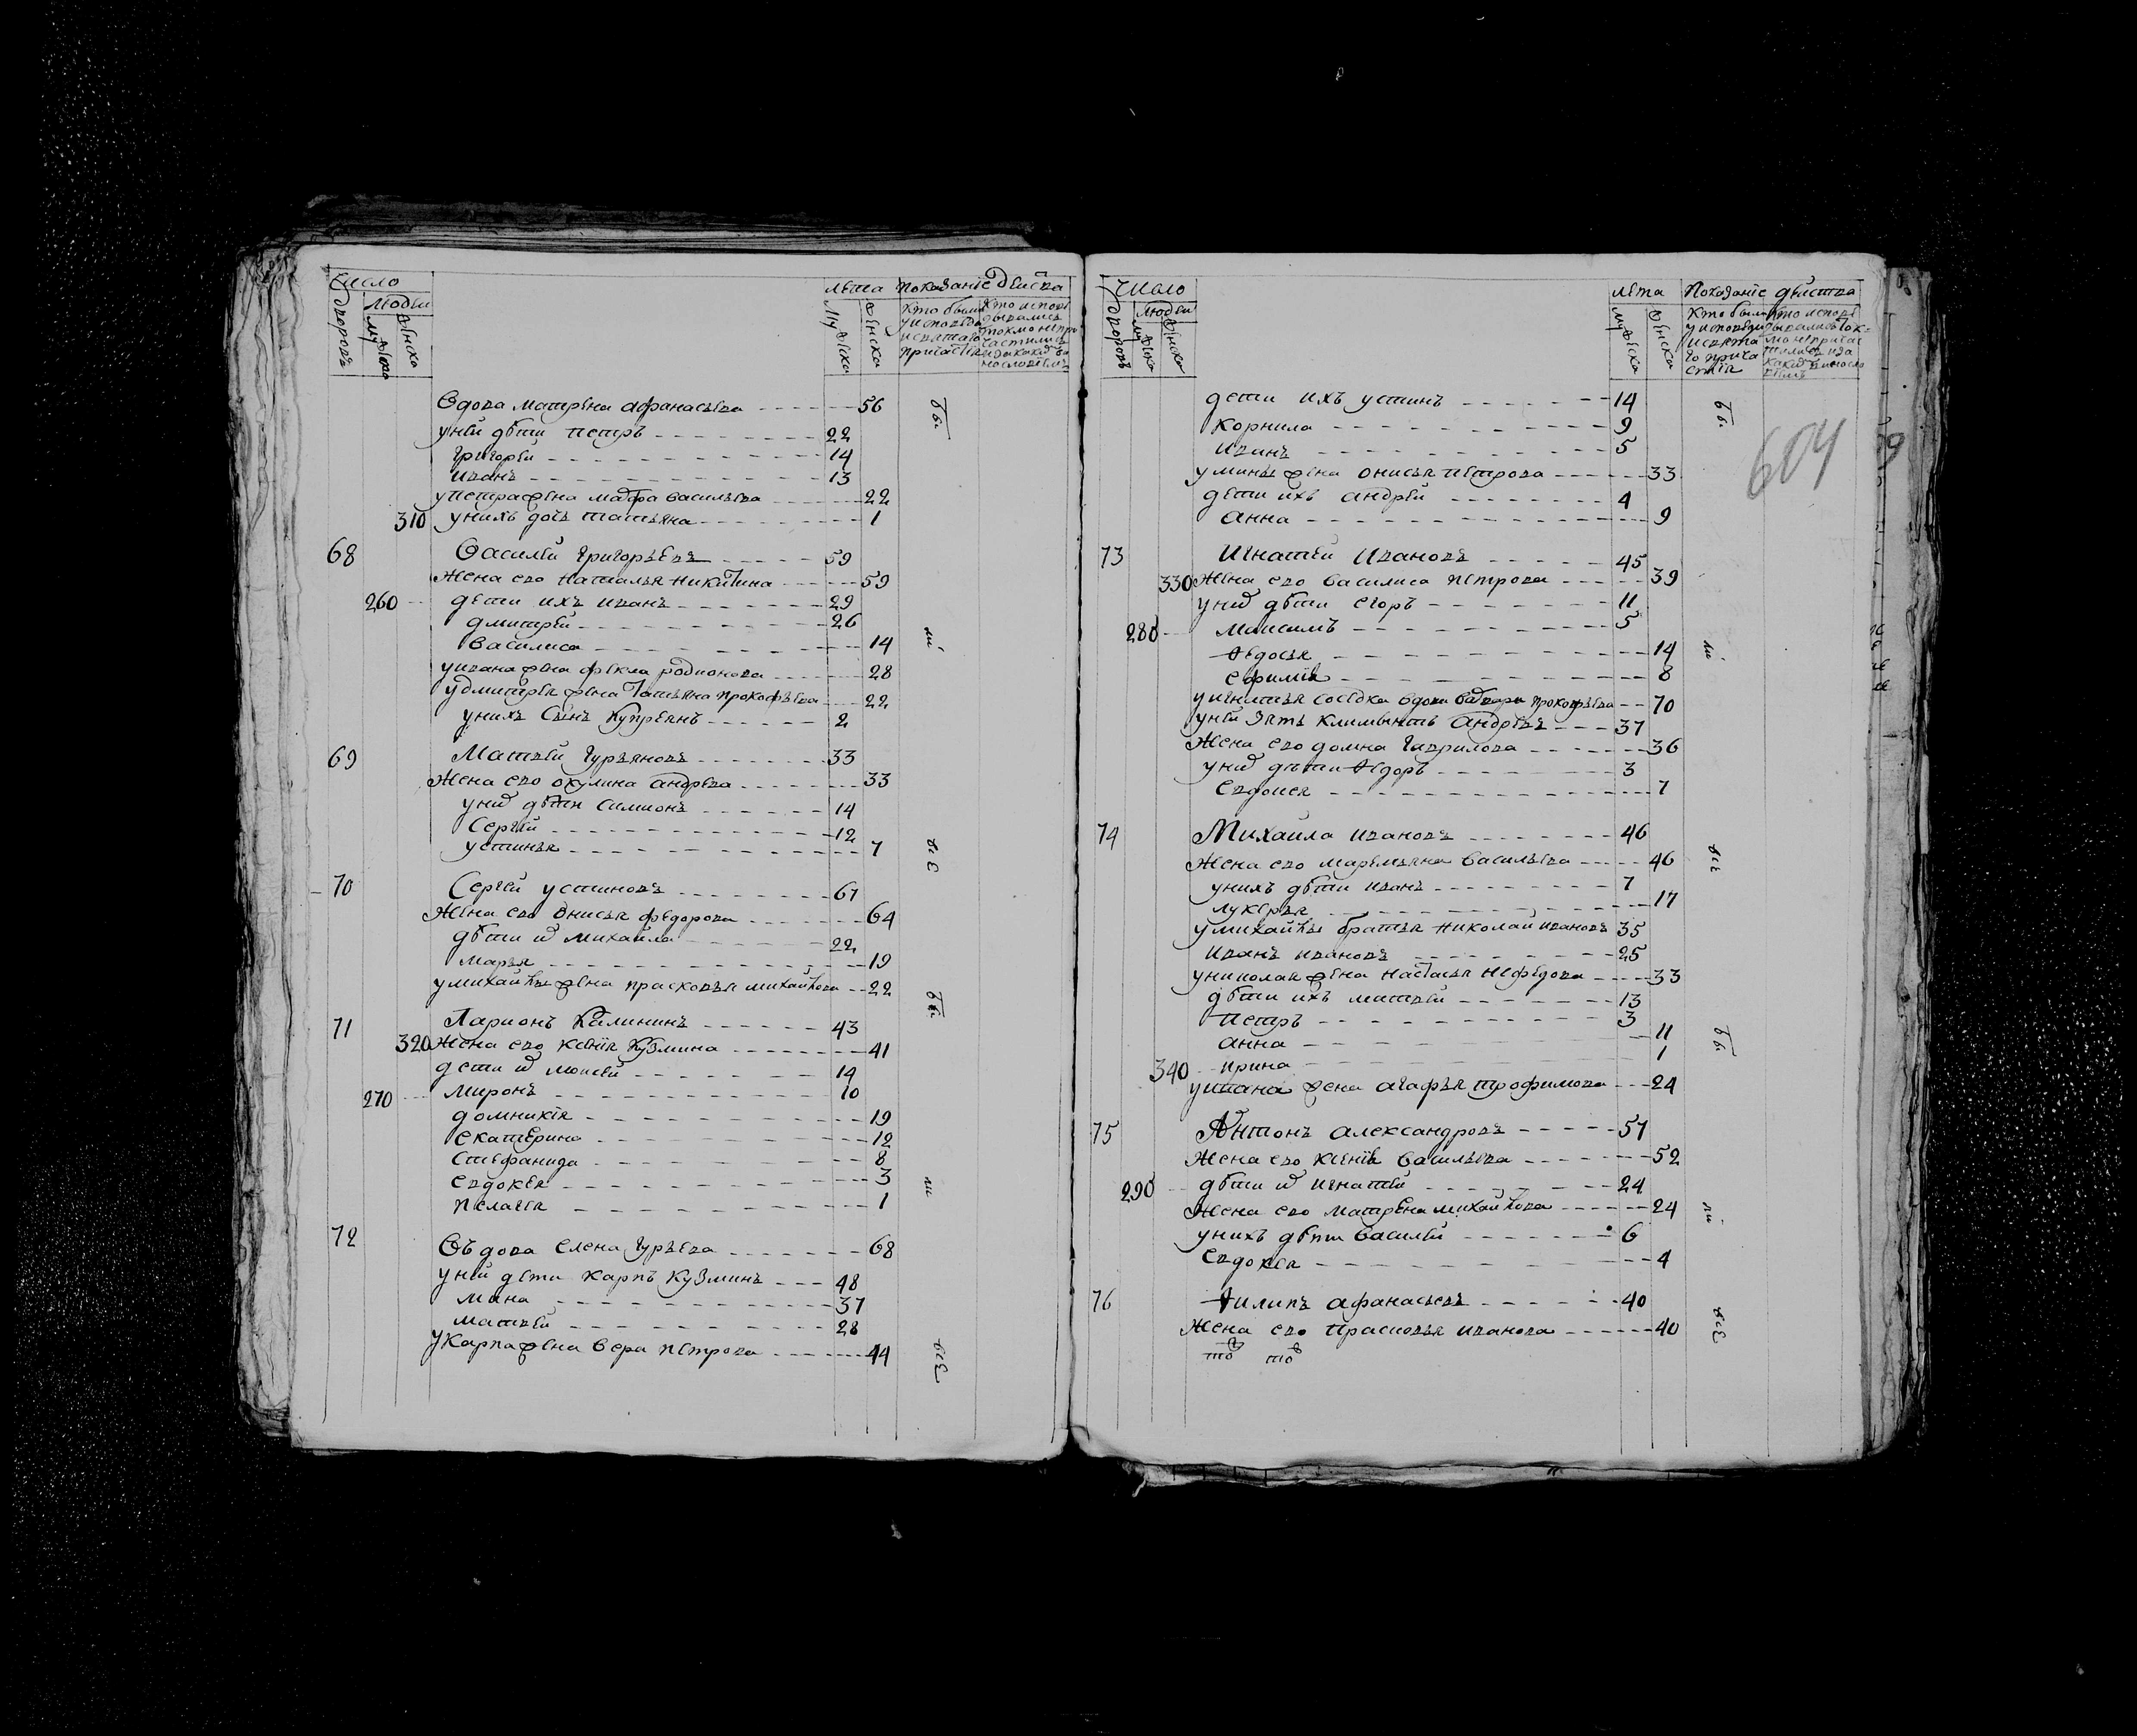 число
лѣта показаніе действа
дворовъ
людей
мужеска
женска
мужеска
женска
вдова матрена афанасьева 56
у ней дѣти петръ 22
григорей 14
иванъ 13
у петра жена мавра васильева 22
310 у нихъ дочь татьяна 1
68 Василей григорьевъ 59
жена ево наталья никитина 59
260 дети ихъ иванъ 29
дмитрей 26
василиса 14
у ивана жена фекла родионова 28
у дмитрея жена татьяна прокофьева 22
у нихъ сынъ купреянъ 2
69 Матвей гурьяновъ 33
жена ево окулина андрева 33
у них дѣти симионъ 14
Сергей 12
устинья 7
70 Сергей устиновъ 67
жена ево онисья федорова 64
дѣти их михайла 22
марья 19
у михайлы жена прасковья михайлова 22
71 Ларионъ Калининъ 43
320 жена ево ксенія кузмина 41
дети их моисей 14
270 миронъ 10
домникія 19
екатерина 12
степанида 8
евдокея 3
пелагея 1
72 Въдова елена гурьева 68
у ней дети карпъ кузминъ 48
мина 37
матвей 28
у Карпа жена вера петрова 44
бы
ли
все
бы
ли
всѣ
число
лѣта показаніе действа
дворовъ
людей
мужеска
женска
мужеска
женска
604
дети ихъ устинъ 14
корнила 9
иванъ 5
у мины жена онисья петрова 33
дети ихъ андрей 4
анна 9
73 Игнатей Ивановъ 45
330 жена ево василиса петрова 39
у них дѣти егоръ 11
280 максимъ 5
ѳедосья 14
ефимія 8
у игнатья соседка вдова варвара прокофьева 70
у ней зять климентъ андревъ 37
жена ево домна гаврилова 36
у них дѣти ѳедоръ 3
евдокея 7
74 Михаила ивановъ 46
жена ево маремьяна васильева 46
у нихъ дѣти иванъ 7
лукерья 17
у михайлы братья николай ивановъ 35
иванъ ивановъ 25
у николая жена настасья нефедова 33
дѣти ихъ матвей 13
петръ 3
анна 11
340 ирина 1
у ивана жена агафья трофимова 24
75 Антонъ александровъ 57
жена ево ксенія васильева 52
290 дѣти их игнатей 24
жена ево матрена михайлова 24
у нихъ дѣти василей 6
евдокея 4
76 Ѳилипъ афанасьевъ 40
жена ево прасковья иванова 40
бы
ли
всѣ
бы
ли
всѣ